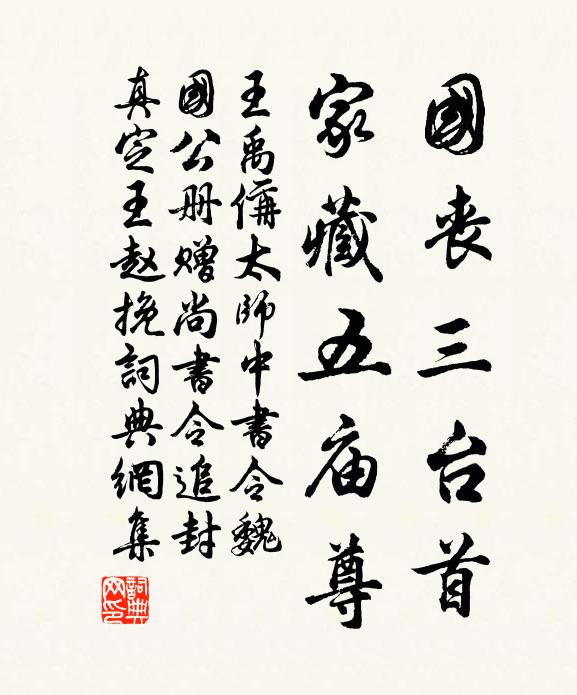 國丧三台首
家藏五庙尊
王禹偁太師中書令魏
國公册赠尚書令追封
真定王赵挽詞典網集
詞典网印